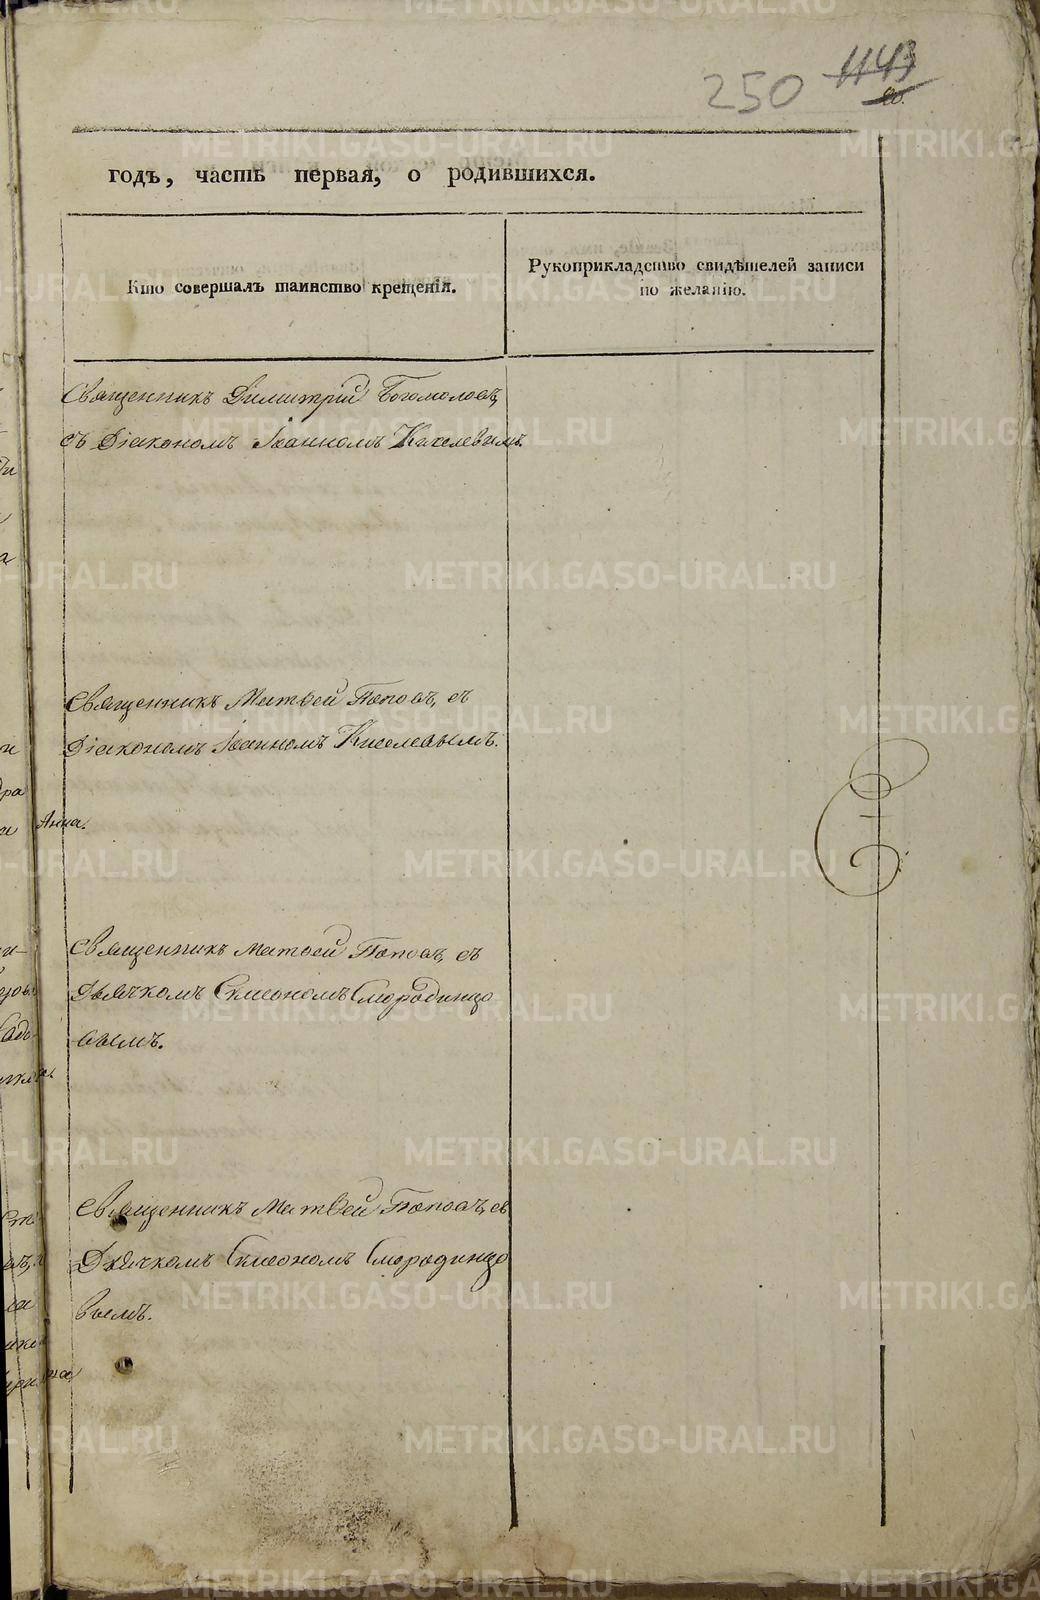 250 1143
годъ, часть первая, о родившихся.
Кто совершалъ таинство крещенія.
Рукоприкладство свидѣтелей записи
по желанію.
Священникъ Димитрій Богомоловъ,
съ Діакономъ Іоанномъ Киселевымъ.
Священникъ Матвей Поповъ, съ
Діакономъ Іоанномъ Киселевымъ.
Анна.
Священникъ Матвей Поповъ, съ
Дьячкомъ Симеономъ Смородинцо
вымъ.
Священникъ Матвей Поповъ, съ
Дьячкомъ Симеономъ Смородинцо
вымъ.
METRIKI.GASO-URAL.RU